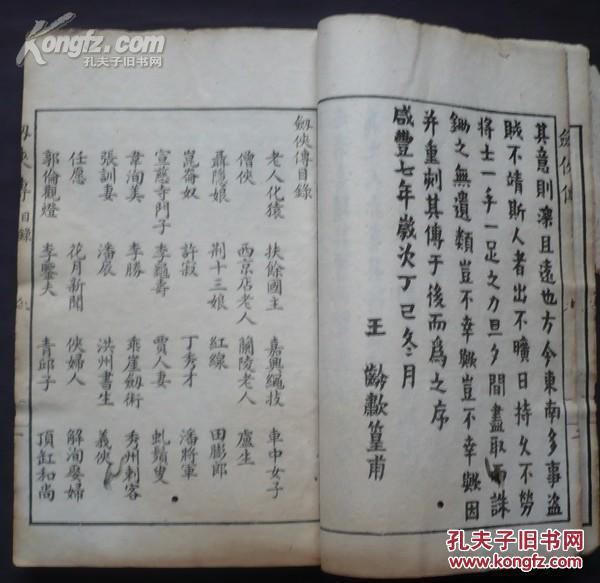 其意則深且遠也方今東南多事盜
賊不靖斯人者出不曠日持久不勞
將士一手一足之力旦夕間盡取而誅
鋤之無遺類豈不幸歟豈不幸歟因
并重刻其傳于後而為之序
咸豐七年歲次丁巳冬二月
王齡歗篁甫
劍俠傳
劔俠傳目錄
老人化猿 扶餘國主 嘉興繩技 車中女子
僧俠 西京店老人 蘭陵老人 盧生
聶隱娘 荊十三娘 紅線 田膨郎
崑崙奴 許寂 丁秀才 潘將軍
宣慈寺門子 李龜壽 賈人妻 虬鬚叟
韋洵美 李勝 乖崖劔術 秀州刺客
張訓妻 潘扆 洪州書生 義俠
任愿 花月新聞 俠婦人 解洵娶婦
郭倫觀燈 李鑒夫 青邱子 頂缸和尚
劔俠傳 目錄
Kongfz.com
孔夫子旧书网
孔夫子旧书网